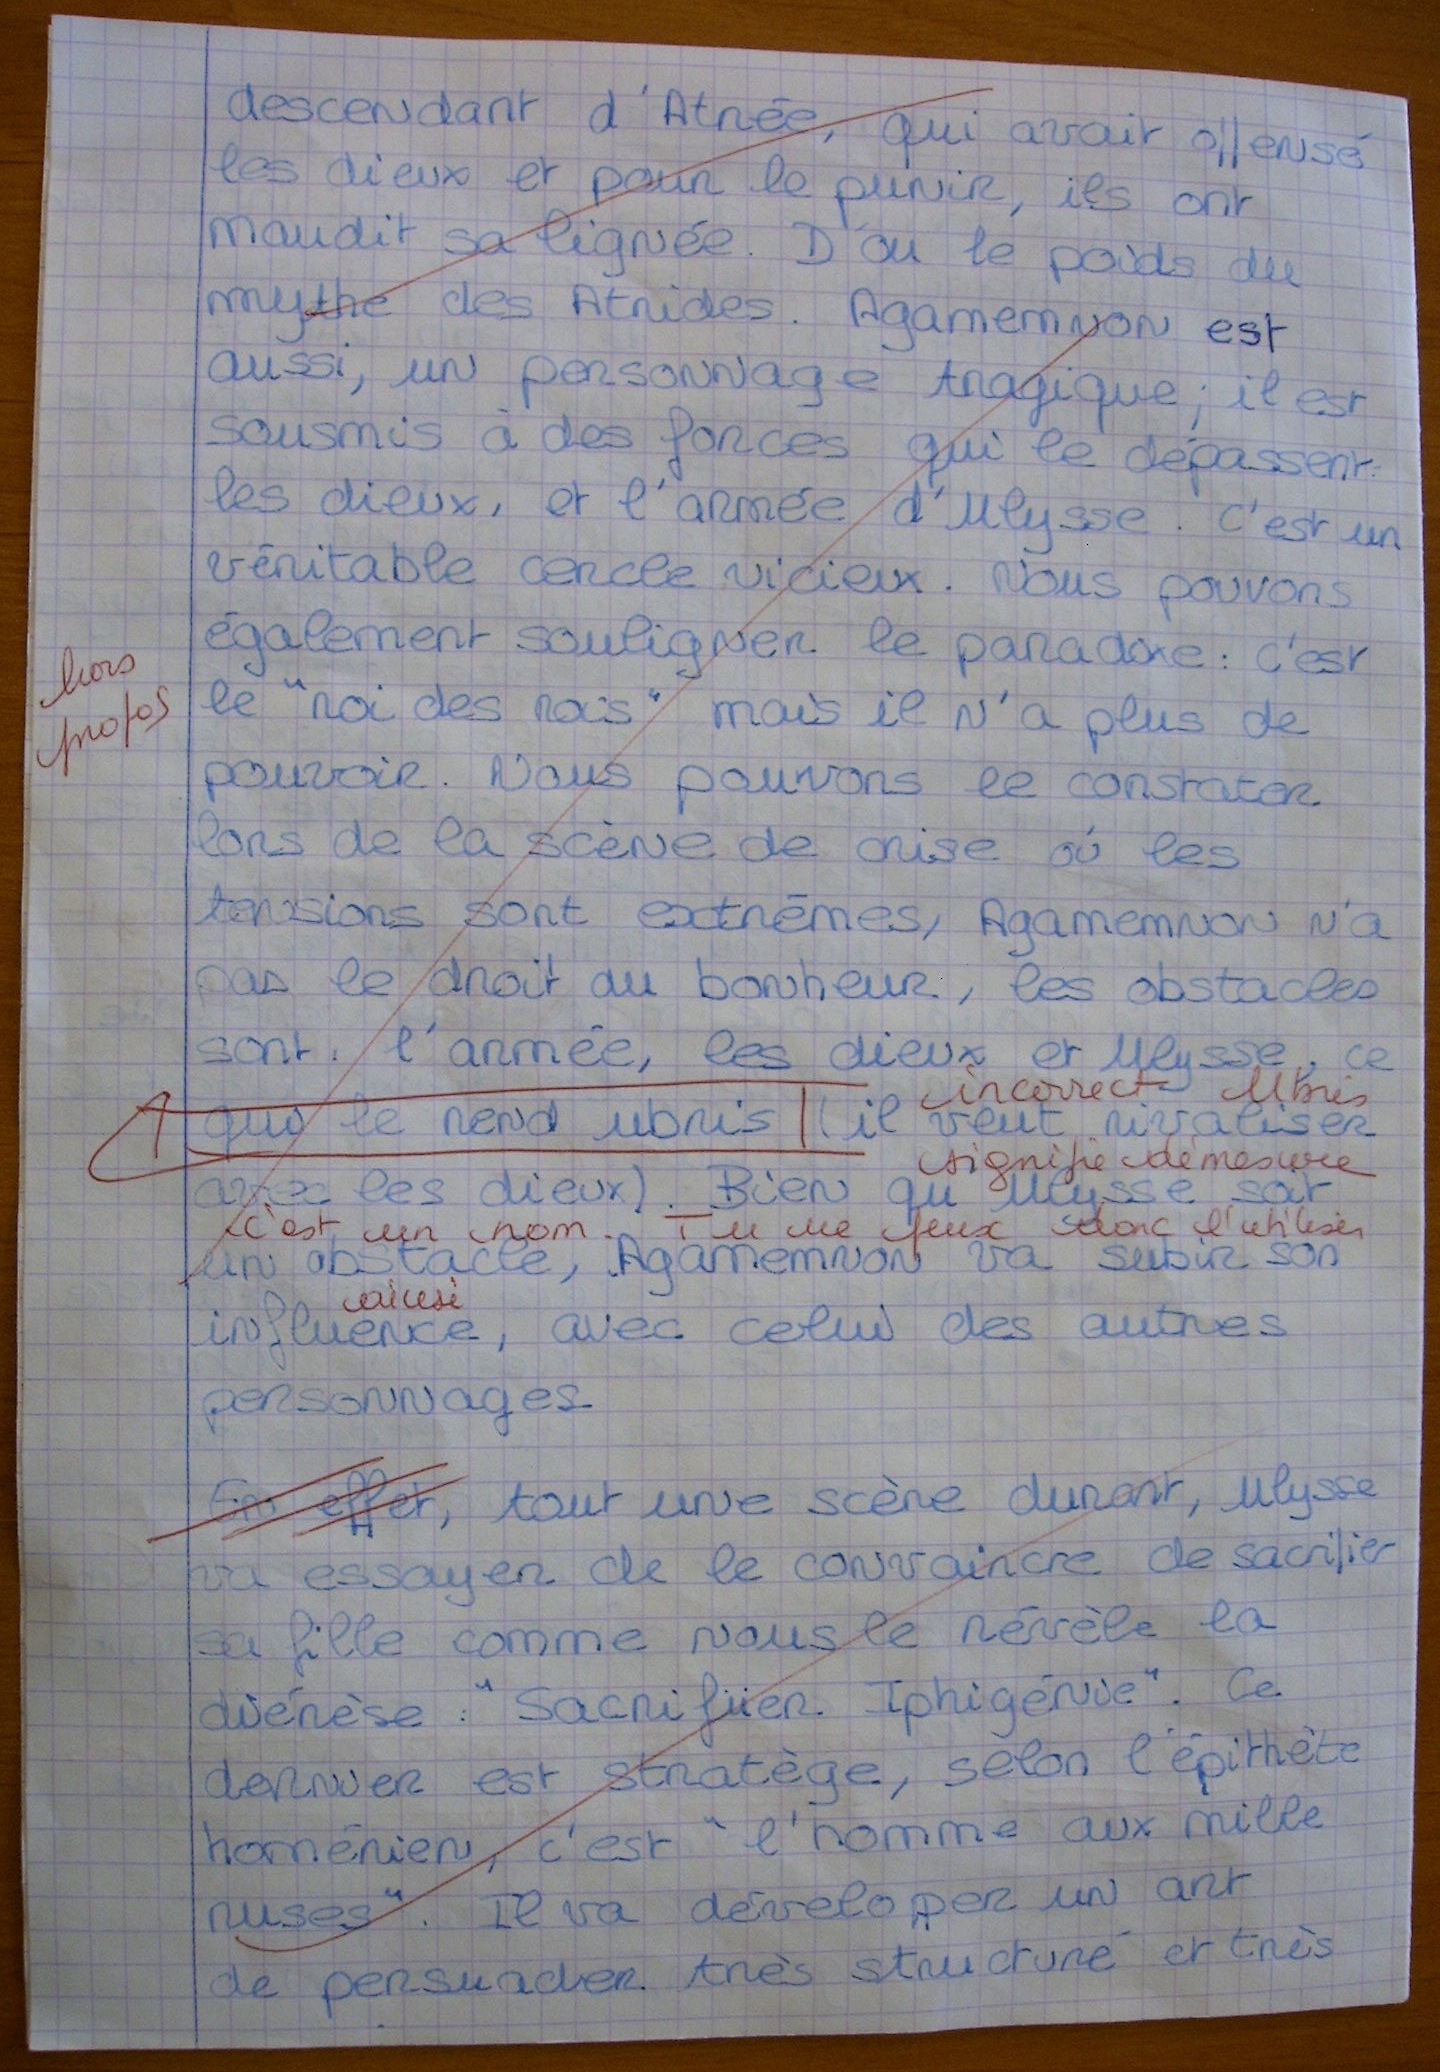 descendant d'Atrée, qui avait offensé
les dieux et pour le punir, ils ont
maudit sa lignée. D'ou le poids du
mythe des Atrides. Agamemnon est
aussi, un personnage tragique; il est
sousmis à des forces qui le dépassent:
les dieux, et l'armée d'Ulysse. C'est un
véritable cercle vicieux. Nous pouvons
également souligner le paradoxe: c'est
hors
propos
le "roi des rois" mais il n'a plus de
pouvoir. Nous pouvons le constater
lors de la scène de crise où les
tensions sont extrêmes, Agamemnon n'a
pas le droit au bonheur, les obstacles
sont: l'armée, les dieux et Ulysse. ce
incorrect Ubris
qui le rend ubris (il veut rivaliser
signifie démesure
avec les dieux). Bien qu'Ulysse soit
c'est un nom. Tu ne peux donc l'utiliser
un obstacle, Agamemnon va subir son
ainsi
influence, avec celui des autres
personnages
En effet, tout une scène durant, Ulysse
va essayer de le convaincre de sacrifier
sa fille comme nous le révèle la
diérèse: "Sacrifiier Iphigénie". Ce
dernier est stratège, selon l'épithète
homérien, c'est "l'homme aux mille
ruses". Il va développer un art
de persuader très structuré et très